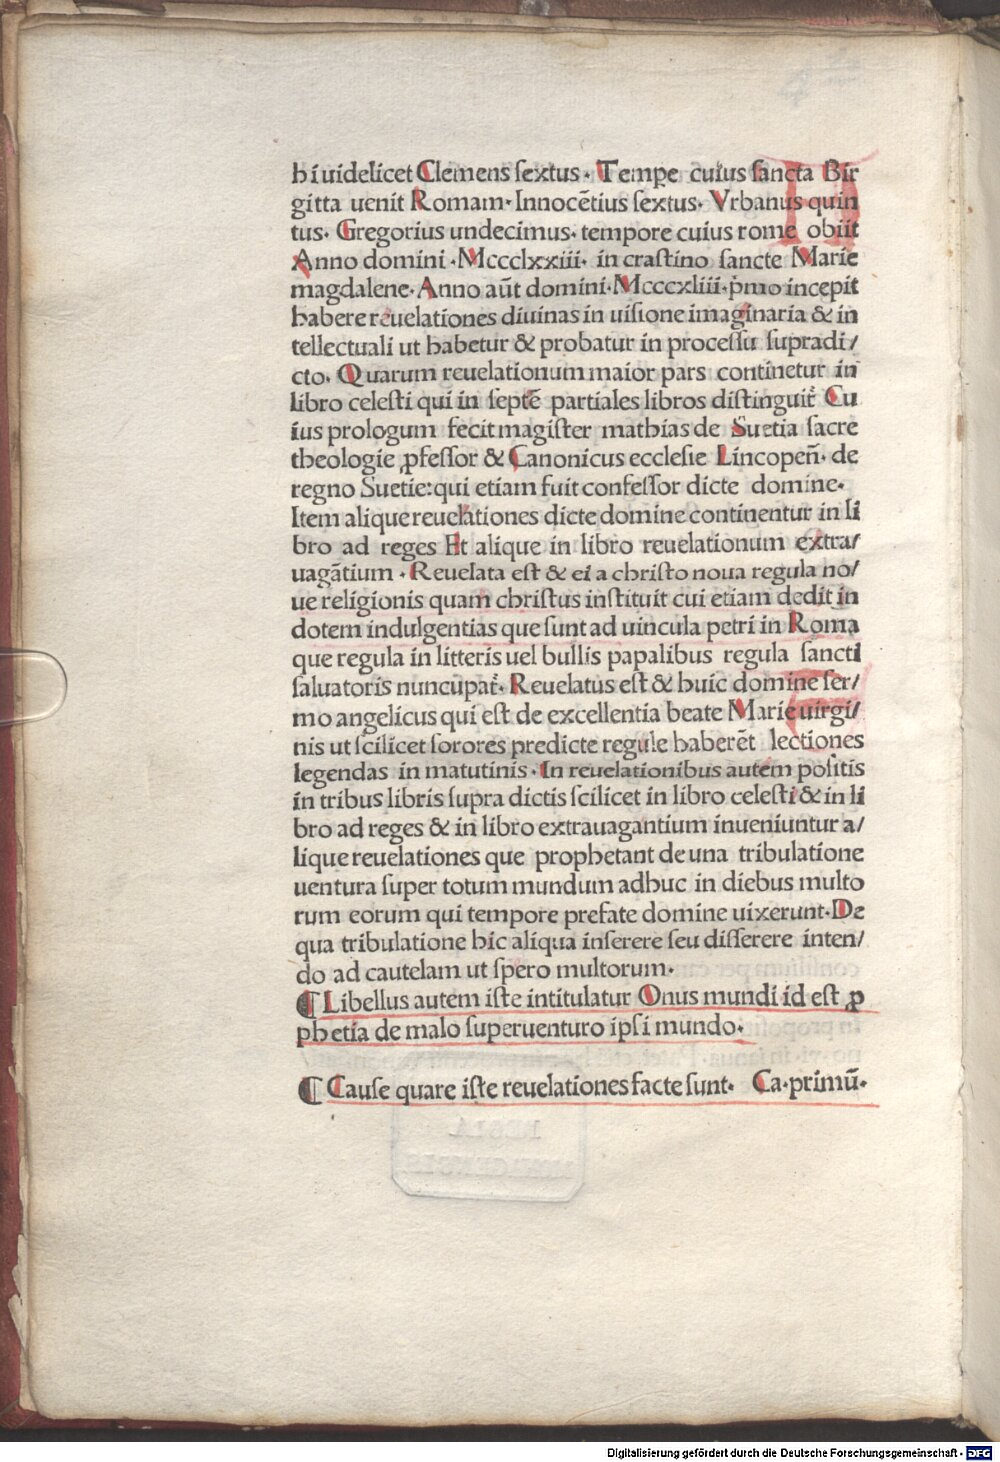 hi uidelicet Clemens ſextus. Tempe cuius ſancta Bir
gitta uenit Romam. Innocẽtius ſextus. Vrbanus quin
tus. Gregorius undecimus. tempore cuius rome obiit
Anno domini .Mccclxxiii. in craſtino ſancte Marie
magdalene. Anno aũt domini. Mcccxliii. p̃mo incepit
habere reuelationes diuinas in uiſione imaginaria & in
tellectuali ut habetur & probatur in proceſſu ſupradi/
cto. Quarum reuelationum maior pars continetur in
libro celeſti qui in ſeptẽ partiales libros diſtinguit̃ Cu
ius prologum fecit magiſter mathias de Suetia ſacre
theologie ꝓfeſſor & Canonicus eccleſie Lincopeñ. de
regno Suetie: qui etiam fuit confeſſor dicte domine.
Item alique reuelationes dicte domine continentur in li
bro ad reges Et alique in libro reuelationum extra/
uagãtium . Reuelata eſt & ei a chriſto noua regula no/
ue religionis quam chriſtus inſtituit cui etiam dedit in
dotem indulgentias que ſunt ad uincula petri in Roma
que regula in litteris uel bullis papalibus regula ſancti
ſaluatoris nuncupat̃. Reuelatus eſt & huic domine ſer/
mo angelicus qui eſt de excellentia beate Marie uirgi/
nis ut ſcilicet ſorores predicte regule haberẽt lectiones
legendas in matutinis . In reuelationibus autem poſitis
in tribus libris ſupra dictis ſcilicet in libro celeſti & in li
bro ad reges & in libro extrauagantium inueniuntur a/
lique reuelationes que prophetant de una tribulatione
uentura ſuper totum mundum adhuc in diebus multo
rum eorum qui tempore prefate domine uixerunt. De
qua tribulatione hic aliqua inſerere ſeu diſſerere inten/
do ad cautelam ut ſpero multorum.
¶ Libellus autem iſte intitulatur Onus mundi id eſt ꝓ
phetia de malo ſuperuenturo ipſi mundo.
¶ Cauſe quare iſte reuelationes facte ſunt. Ca. primũ.
Digitalisierung gefördert durch die Deutsche Forschungsgemeinschaft - DFG